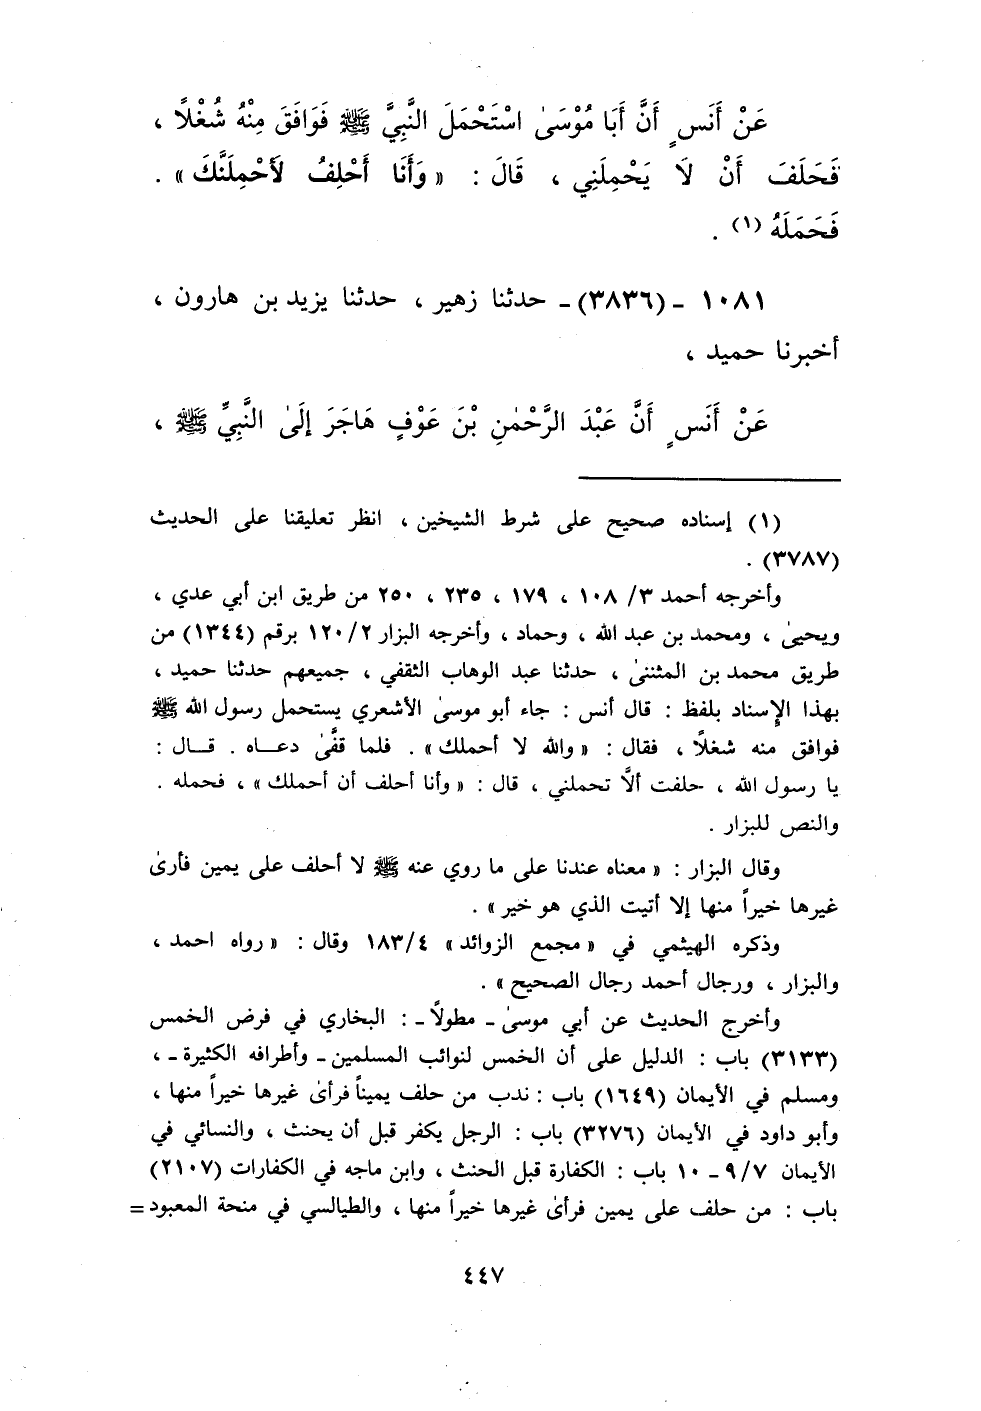 عَنْ أَنَسٍ أَنَّ أَبَا مُوْسَىٰ اسْتَحْمَلَ النَّبِيَّ ﷺ فَوَافَقَ مِنْهُ شُغْلًا ،
فَحَلَفَ أَنْ لَا يَحْمِلَنِي ، قَالَ : « وَأَنَا أَحْلِفُ لَأَحْمِلَنَّكَ » .
فَحَمَلَهُ (١) .
١٠٨١ ـ (٣٨٣٦) ـ حدثنا زهير ، حدثنا يزيد بن هارون ،
أخبرنا حميد ،
عَنْ أَنَسٍ أَنَّ عَبْدَ الرَّحْمٰنِ بْنَ عَوْفٍ هَاجَرَ إِلَىٰ النَّبِيِّ ﷺ ،
(١) إسناده صحيح على شرط الشيخين ، انظر تعليقنا على الحديث
(٣٧٨٧) .
وأخرجه أحمد ٣/ ١٠٨ ، ١٧٩ ، ٢٣٥ ، ٢٥٠ من طريق ابن أبي عدي ،
ويحيىٰ ، ومحمد بن عبد الله ، وحماد ، وأخرجه البزار ٢/ ١٢٠ برقم (١٣٤٤) من
طريق محمد بن المثنىٰ ، حدثنا عبد الوهاب الثقفي ، جميعهم حدثنا حميد ،
بهذا الإسناد بلفظ : قال أنس : جاء أبو موسىٰ الأشعري يستحمل رسول الله ﷺ
فوافق منه شغلاً ، فقال : « والله لا أحملك » . فلما قفَّىٰ دعـاه . قـال :
يا رسول الله ، حلفت ألَّا تحملني ، قال : « وأنا أحلف أن أحملك » ، فحمله .
والنص للبزار .
وقال البزار : « معناه عندنا على ما روي عنه ﷺ لا أحلف على يمين فأرىٰ
غيرها خيراً منها إلا أتيت الذي هو خير » .
وذكره الهيثمي في « مجمع الزوائد » ٤/ ١٨٣ وقال : « رواه احمد ،
والبزار ، ورجال أحمد رجال الصحيح » .
وأخرج الحديث عن أبي موسىٰ ـ مطولاً ـ : البخاري في فرض الخمس
(٣١٣٣) باب : الدليل على أن الخمس لنوائب المسلمين ـ وأطرافه الكثيرة ـ ،
ومسلم في الأيمان (١٦٤٩) باب : ندب من حلف يميناً فرأىٰ غيرها خيراً منها ،
وأبو داود في الأيمان (٣٢٧٦) باب : الرجل يكفر قبل أن يحنث ، والنسائي في
الأيمان ٧/ ٩ ـ ١٠ باب : الكفارة قبل الحنث ، وابن ماجه في الكفارات (٢١٠٧)
باب : من حلف على يمين فرأىٰ غيرها خيراً منها ، والطيالسي في منحة المعبود =
٤٤٧